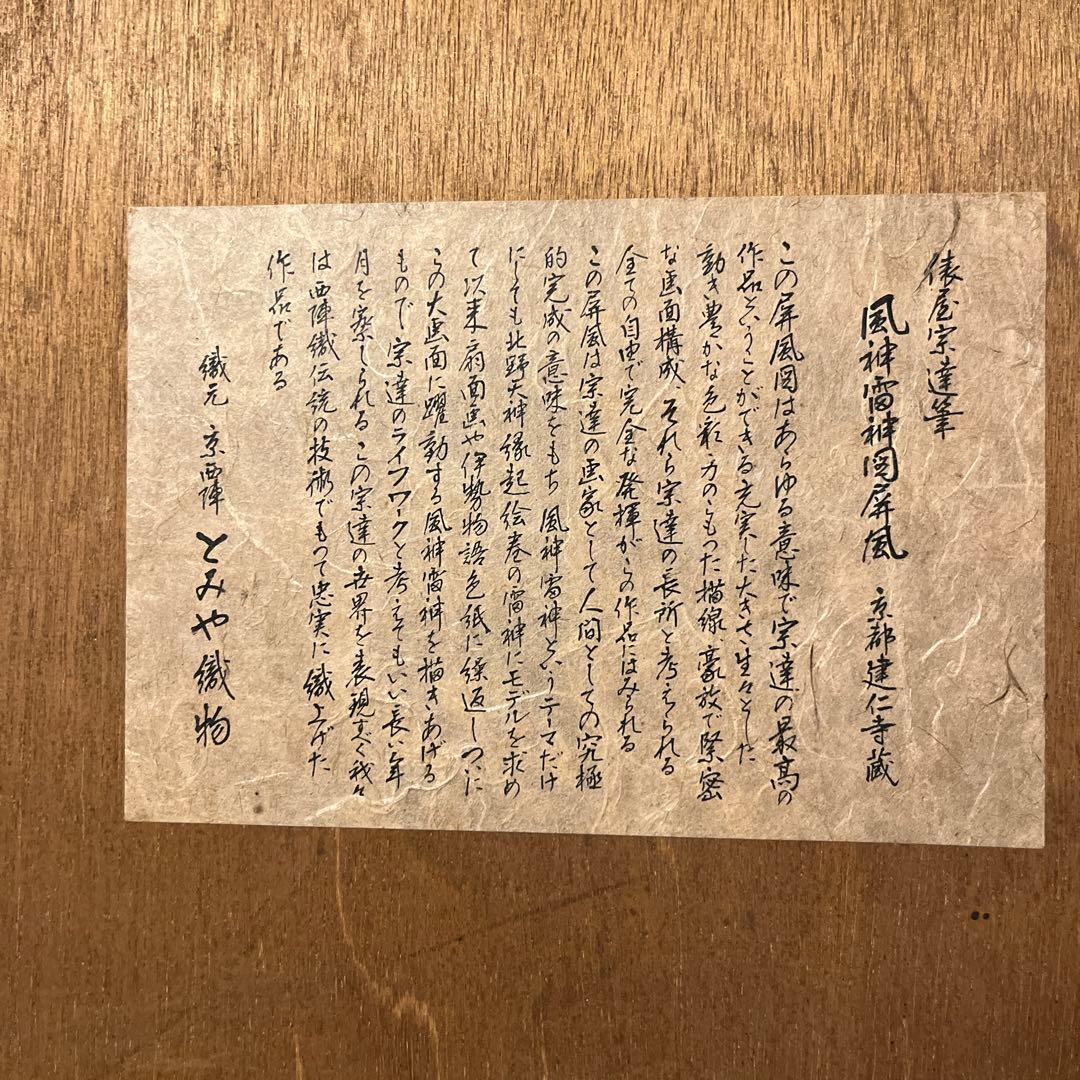 俵屋宗達筆
風神雷神図屏風 京都建仁寺蔵
この屏風図はあらゆる意味で宗達の最高の
作品ということができる充実した大きさ、生々とした
動き豊かな色彩、力のこもった描線、豪放で緊密
な画面構成、それら宗達の長所と考えられる
全ての自由で完全な発揮がこの作品にはみられる
この屏風は宗達の画家として人間としての究極
的完成の意味をもち 風神雷神というテーマだけ
にしても北野天神縁起絵巻の雷神にモデルを求め
て以来 扇面画や伊勢物語色紙に繰返しついに
この大画面に躍動する風神雷神を描きあげる
もので 宗達のライフワークと考えてもいい長い年
月を察しられる この宗達の世界を表現すべく我々
は西陣織伝統の技術でもって忠実に織上げた
作品である
織元 京西陣 とみや織物